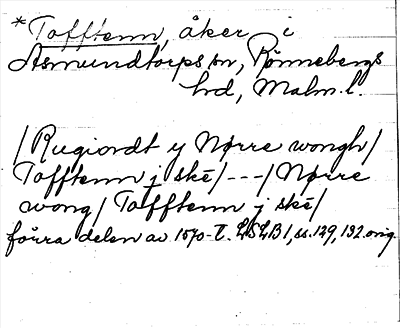 *Tofftenn, åker i
Asmundtorps sn, Rönnebergs
hd, Malm. l.
/Rugiordt y Nørre wongh/
Tofftenn j skē/---/Nørre
wong/ Tofftenn j skē/
förra delen av 1570-t. LSLB 1, ss. 129, 132 orig.